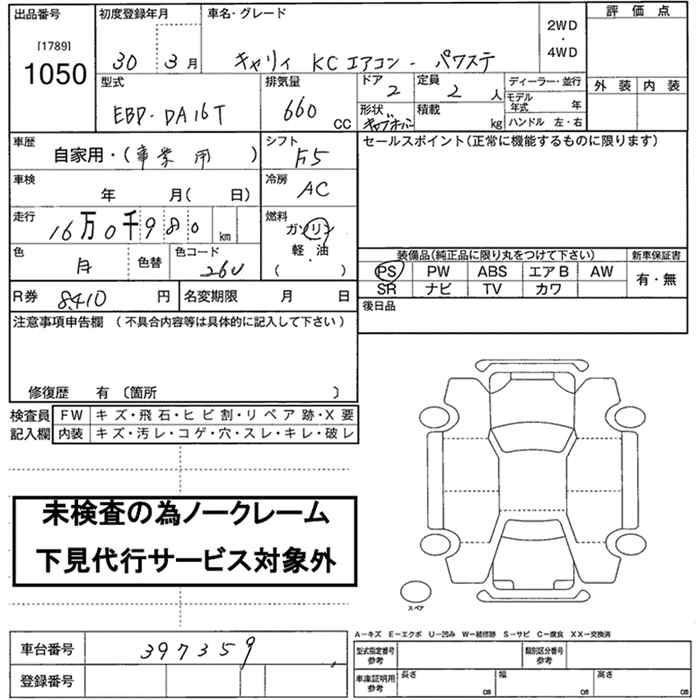 出品番号
[1789]
1050
初度登録年月
30 3月
車名・グレード
キャリィ KCエアコン・パワステ
2WD
・
4WD
評価点
外装 内装
型式
EBD-DA16T
排気量
660 CC
ドア
2
定員
2 人
形状
積載
kg
ディーラー・並行
モデル年式 年
ハンドル 左・右
車歴
自家用・(事業用)
シフト
F5
セールスポイント(正常に機能するものに限ります)
車検
年 月( 日)
冷房
AC
走行
16万0千980 km
燃料
ガソリン
軽・油
( )
色
白
色替
色コード
26U
装備品(純正品に限り丸をつけて下さい)
PS PW ABS エアB AW
SR ナビ TV カワ
新車保証書
有・無
R券 8410 円
名変期限 月 日
後日品
注意事項申告欄 (不具合内容等は具体的に記入して下さい)
修復歴 有 〔箇所 〕
検査員記入欄
FW キズ・飛石・ヒビ割・リペア跡・X要
内装 キズ・汚レ・コゲ・穴・スレ・キレ・破レ
未検査の為ノークレーム
下見代行サービス対象外
スペア
A−キズ E−エクボ U−凹み W−補修跡 S−サビ C−腐食 XX−交換済
車台番号 397359
登録番号
型式指定番号 参考
類別区分番号 参考
車庫証明用 参考
長さ cm
幅 cm
高さ cm